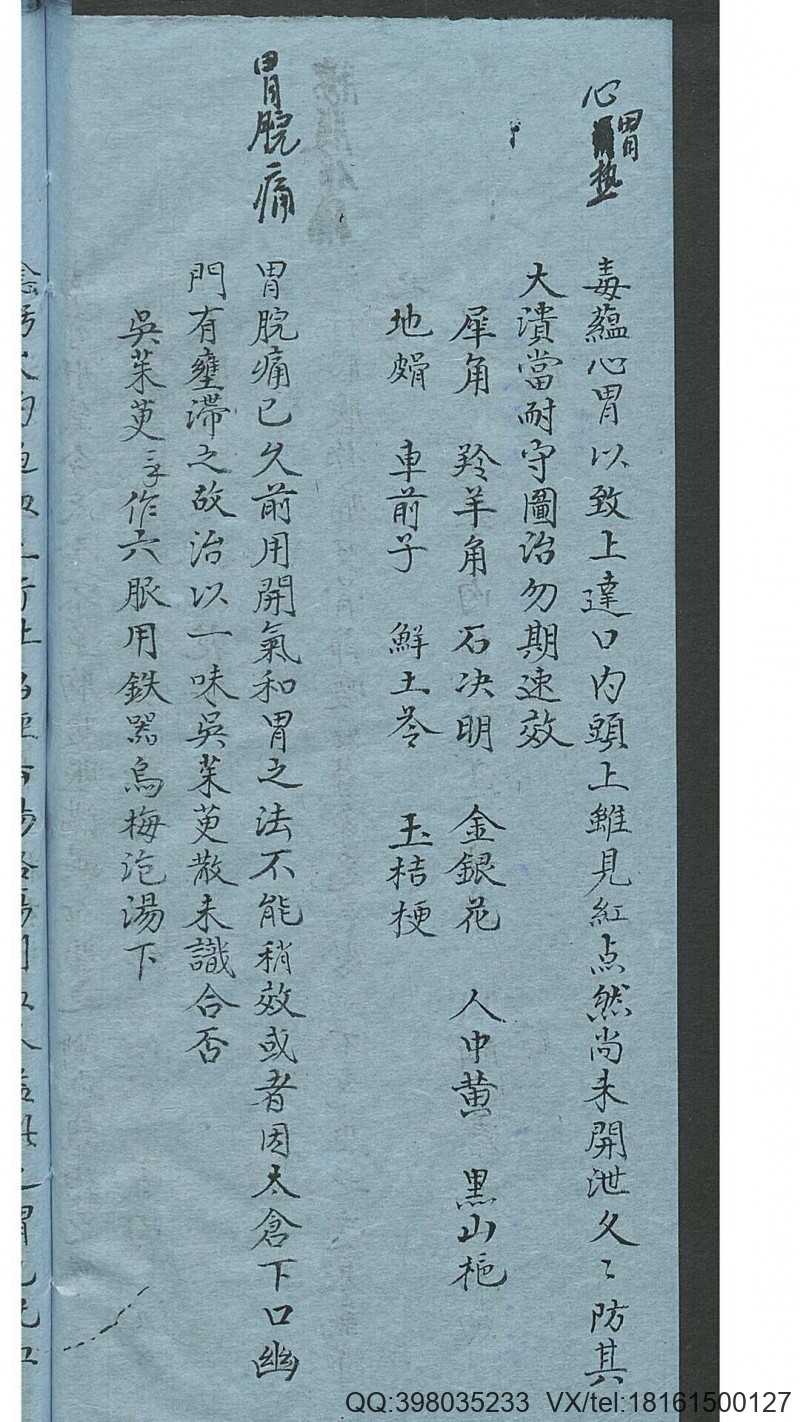 心胃热
毒蘊心胃以致上達口内頭上雖見紅点然尚未開泄久〻防其
大潰當耐守圖治勿期速效
犀角 羚羊角 石决明 金銀花 人中黄 黑山栀
地 車前子 鮮土苓 玉桔梗
胃脘痛
胃脘痛已久前用開氣和胃之法不能稍效或者因太倉下口幽
門有壅滯之故治以一味吳茱萸散未識合否
吳茱萸 作六服用鉄器烏梅泡湯下
QQ:398035233 VX/tel:18161500127